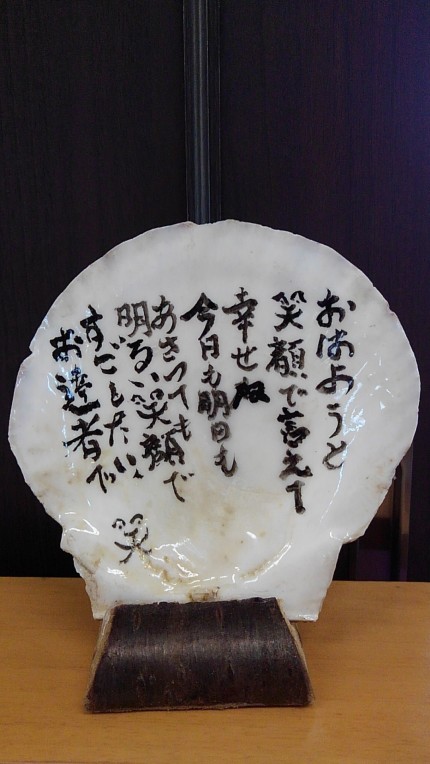 おはようと
笑顔で言えて
幸せね
今日も明日も
あさっても
明るい笑顔で
すごしたい
お達者で
笑